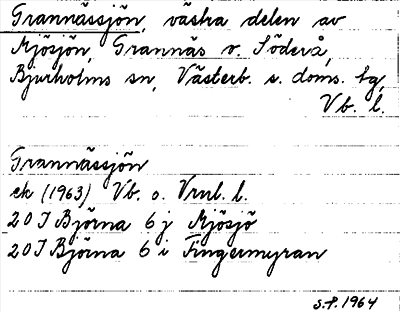 Grannässjön, västra delen av
Mjösjön, Grannäs o. Söderå,
Bjurholms sn, Västerb. s. doms. tg,
Vb. l.
Grannässjön
ek (1963) Vb. o. Vrml. l.
20 I Björna 6 j Mjösjö
20 I Björna 6 i Fingermyran
S.P. 1964